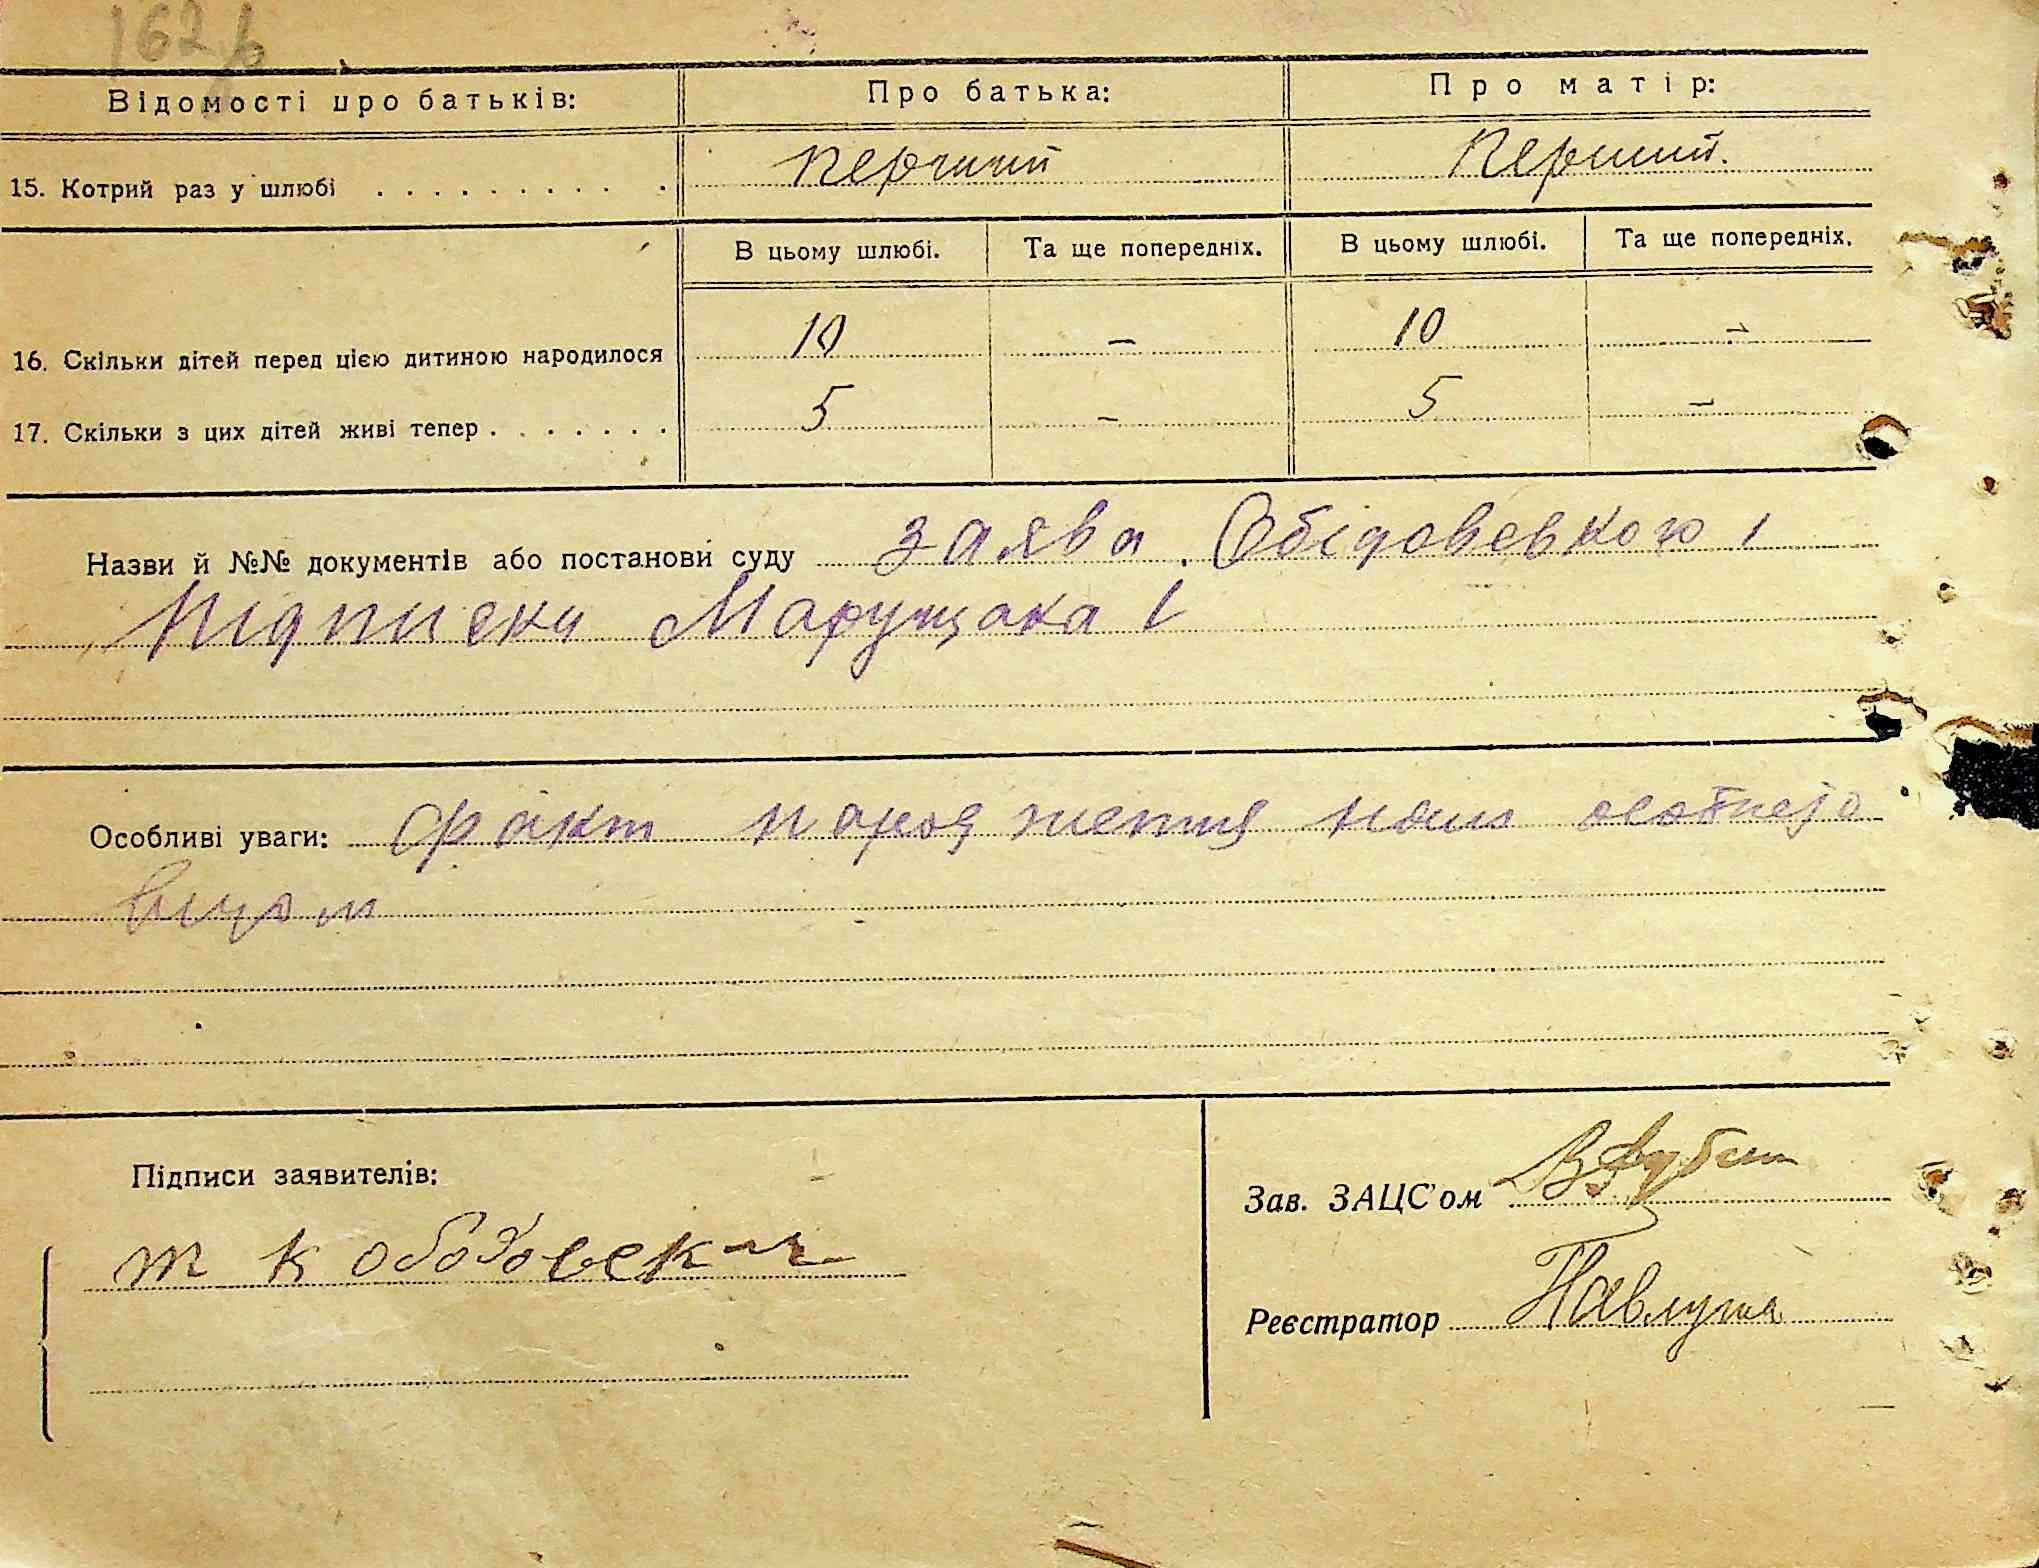 162 b
Відомості про батьків: Про батька: Про матір:
15. Котрий раз у шлюбі . . . . . . . . . . . Перший Перший.
В цьому шлюбі. Та ще попередніх. В цьому шлюбі. Та ще попередніх.
16. Скільки дітей перед цією дитиною народилося 10 – 10 –
17. Скільки з цих дітей живі тепер . . . . . . . 5 – 5 –
Назви й №№ документів або постанови суду заява Обідовського і
підписка Марущака І
Особливі уваги: факт народження нам
Підписи заявителів:
Зав. ЗАЦС'ом
т к
Реєстратор